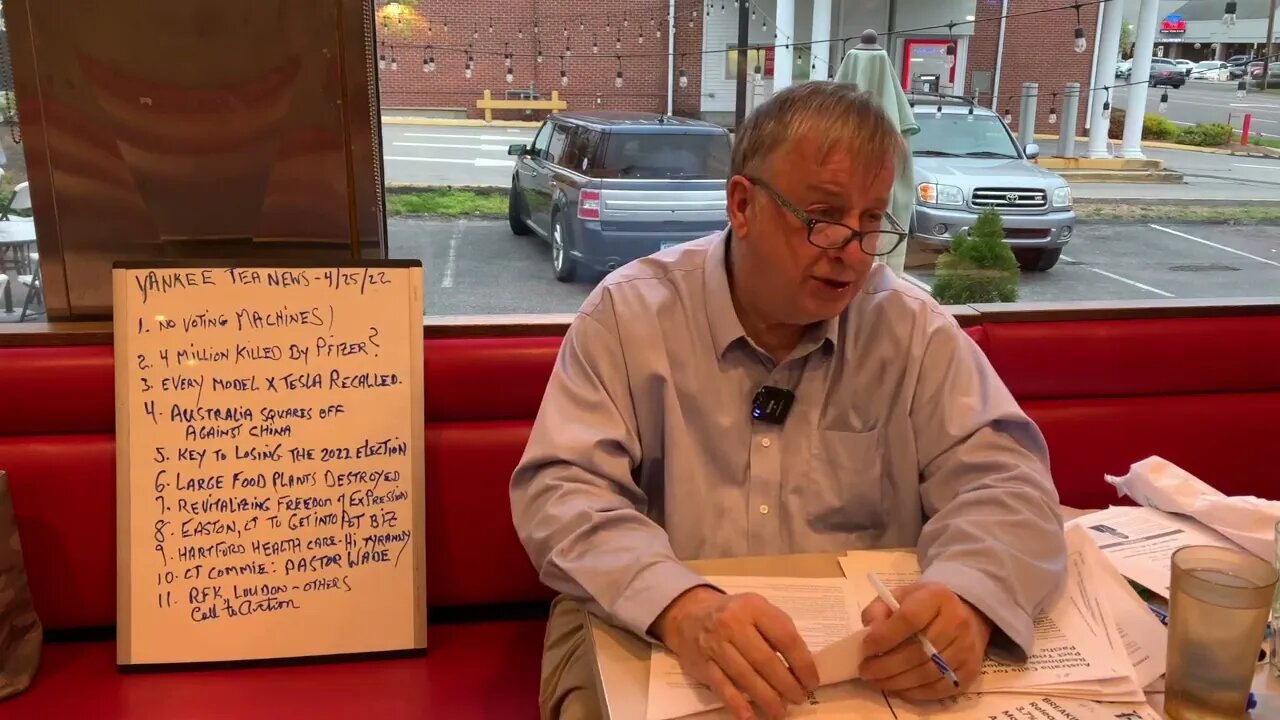 YANKEE TEA NEWS - 4/25/22
1. NO VOTING MACHINES!
2. 4 MILLION KILLED BY PFIZER?
3. EVERY MODEL X TESLA RECALLED.
4. AUSTRALIA SQUARES OFF
AGAINST CHINA
5. KEY TO LOSING THE 2022 ELECTION
6. LARGE FOOD PLANTS DESTROYED
7. REVITALIZING FREEDOM of EXPRESSION
8. EASTON, CT TO GET INTO PET BIZ
9. HARTFORD HEALTH CARE - Hi TYRANNY
10. CT COMMIE: PASTOR WADE
11. RFK, LOUDON - OTHERS
Call to Action
Australia Calls for
Pact
Readiness
Pacific
BREAKI
3.7%
Relea